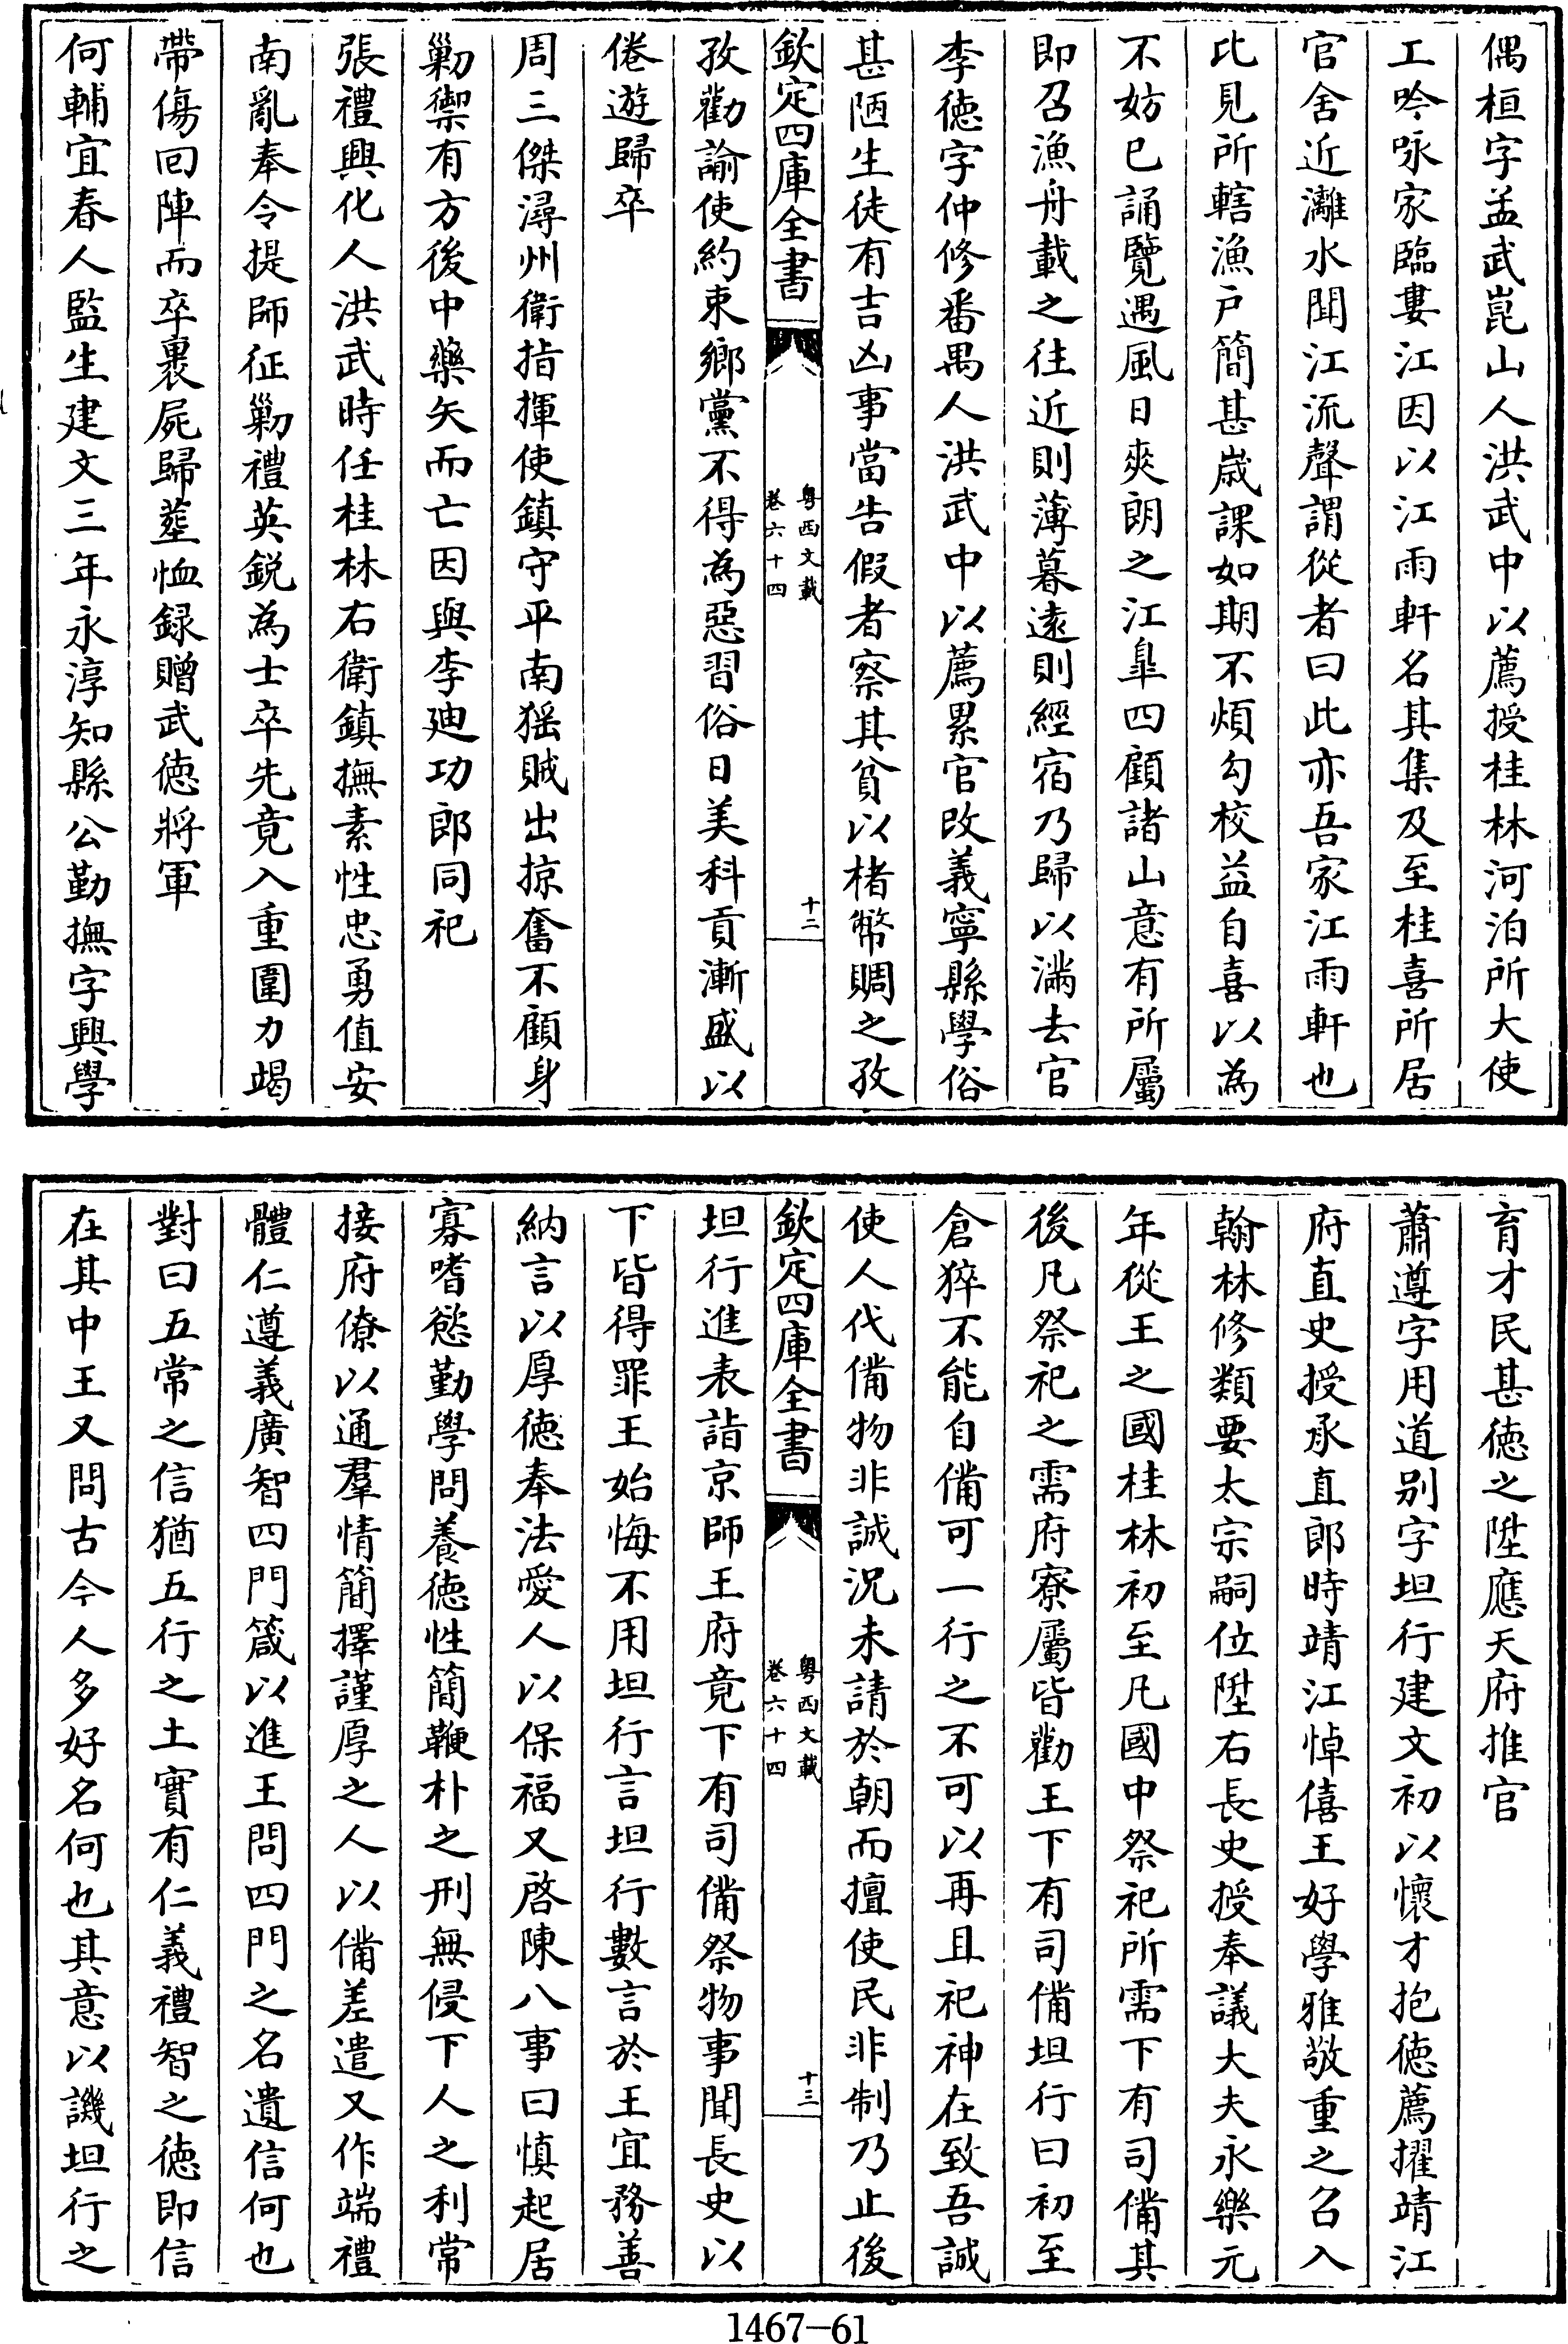 偶桓字孟武崑山人洪武中以薦授桂林河泊所大使
工吟咏家臨婁江因以江雨軒名其集及至桂喜所居
官舍近灕水聞江流聲謂從者曰此亦吾家江雨軒也
比見所轄漁戶簡甚歳課如期不煩勾校益自喜以為
不妨已誦覽遇風日爽朗之江臯四顧諸山意有所屬
即召漁舟載之往近則薄暮遠則經宿乃歸以滿去官
李徳字仲修番禺人洪武中以薦累官改義寧縣學俗
甚陋生徒有吉凶事當告假者察其貧以楮幣賙之孜
欽定四庫全書
粤西文載
卷六十四
十二
孜勸諭使約束鄉黨不得為惡習俗日美科貢漸盛以
倦遊歸卒
周三傑潯州衛指揮使鎮守平南猺賊出掠奮不顧身
勦禦有方後中藥矢而亡因與李廸功郎同祀
張禮興化人洪武時任桂林右衛鎮撫素性忠勇值安
南亂奉令提師征勦禮英鋭為士卒先竟入重圍力竭
帶傷回陣而卒裹屍歸塟恤録贈武徳將軍
何輔宜春人監生建文三年永淳知縣公勤撫字興學
育才民甚徳之陞應天府推官
蕭遵字用道别字坦行建文初以懷才抱徳薦擢靖江
府直史授承直郎時靖江悼僖王好學雅敬重之召入
翰林修類要太宗嗣位陞右長史授奉議大夫永樂元
年從王之國桂林初至凡國中祭祀所需下有司備其
後凡祭祀之需府寮屬皆勸王下有司備坦行曰初至
倉猝不能自備可一行之不可以再且祀神在致吾誠
使人代備物非誠況未請於朝而擅使民非制乃止後
欽定四庫全書
粤西文載
卷六十四
十三
坦行進表詣京師王府竟下有司備祭物事聞長史以
下皆得罪王始悔不用坦行言坦行數言於王宜務善
納言以厚徳奉法愛人以保福又啓陳八事曰慎起居
寡嗜慾勤學問養徳性簡鞭朴之刑無侵下人之利常
接府僚以通羣情簡擇謹厚之人以備差遣又作端禮
體仁遵義廣智四門箴以進王問四門之名遺信何也
對曰五常之信猶五行之土實有仁義禮智之徳即信
在其中王又問古今人多好名何也其意以譏坦行之
1467-61